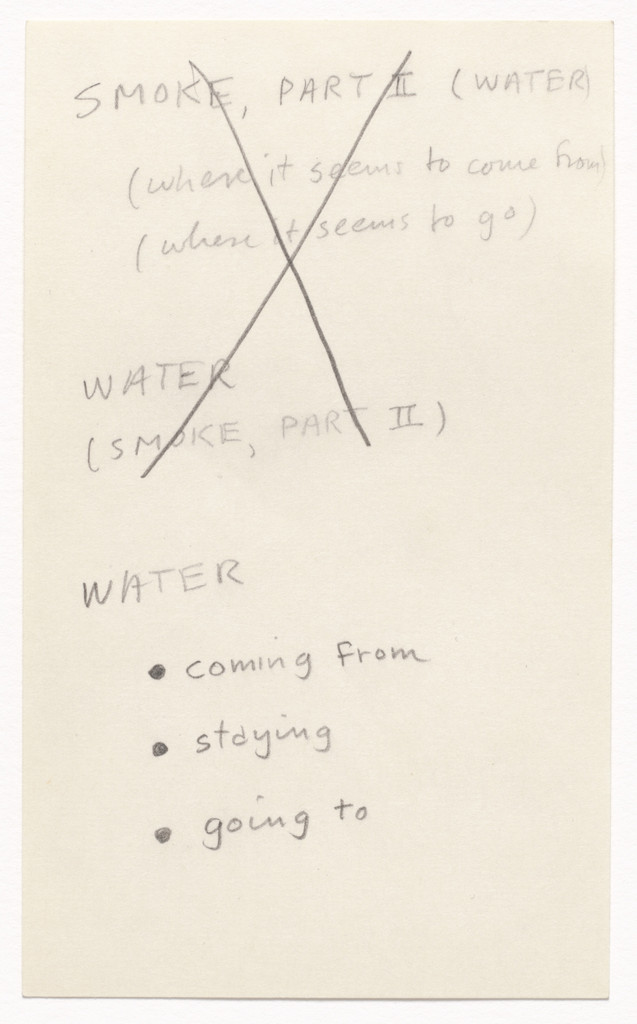 SMOKE, PART II (WATER)
(where it seems to come from)
(where it seems to go)
WATER
(SMOKE, PART II)
WATER
• coming from
• staying
• going to